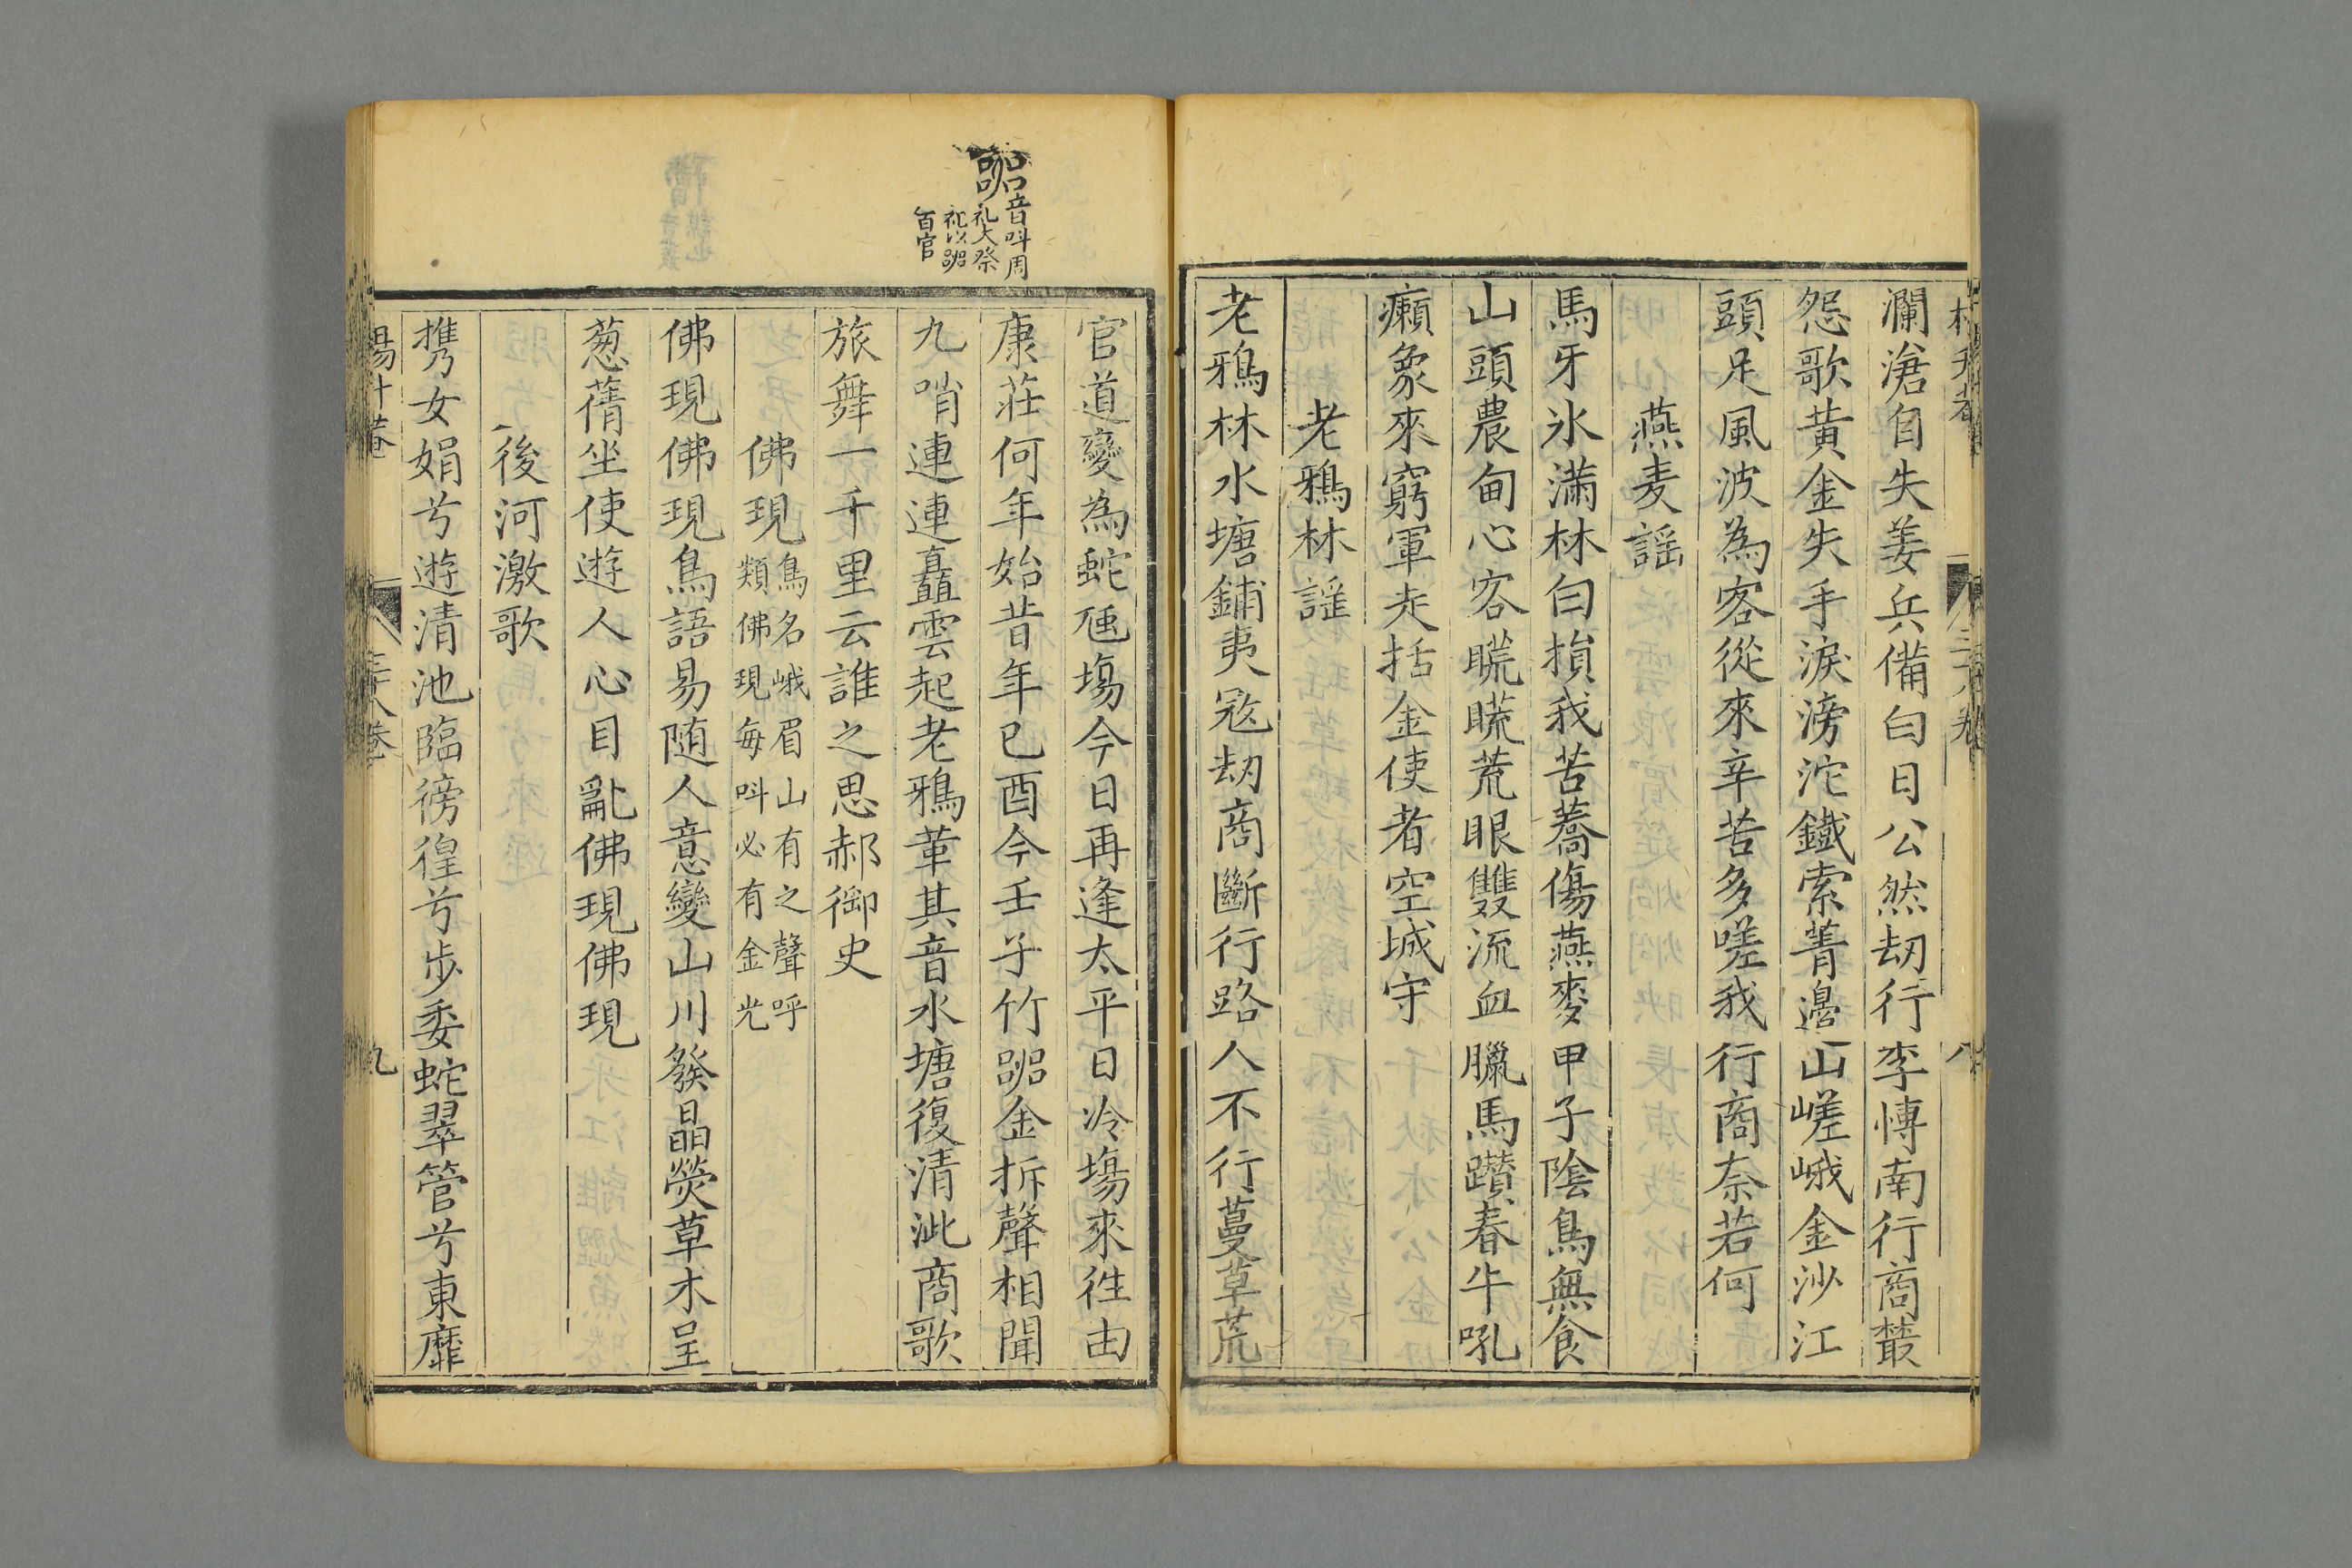 瀾滄自失姜兵備白日公然刼行李愽南行商叢
怨歌黄金失手淚滂沱鐵索菁邊山嵯峨金沙江
頭足風波為客從來辛苦多嗟我行商奈若何
燕麦謡
馬牙氷滿林白損我苦蕎傷燕麥甲子陰鳥無食
山頭農甸心客䀮䀮荒眼雙流血臘馬躦春牛吼
癩象來窮軍走括金使者空城守
老鴉林謡
老鴉林水塘鋪夷冦刼商斷行路人不行蔓草荒
官道變為蛇虺塲今日再逢太平日冷塲來徃由
康莊何年始昔年已酉今壬子竹㗊金拆聲相聞
九哨連連矗雲起老鴉革其音水塘復清泚商歌
旅舞一千里云誰之思郝御史
佛現鳥名峨眉山有之聲呼
類佛現每呌必有金光
佛現佛現鳥語易随人意變山川發晶熒草木呈
葱蒨坐使遊人心目亂佛現佛現
後河激歌
携女娟兮遊清池臨徬徨兮步委蛇翠管兮東靡
㗊音呌周
礼大祭
祀以㗊
百官
八
九